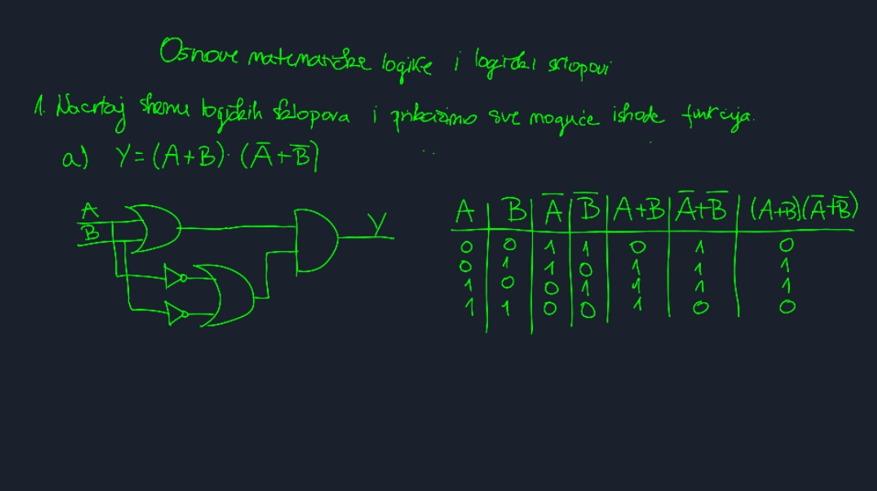 Osnove matematičke logike i logički sklopovi
1. Nacrtaj shemu logičkih sklopova i prikažimo sve moguće ishode funkcija.
a) Y = (A+B)·(A̅+B̅)
A
B
Y
A | B | A̅ | B̅ | A+B | A̅+B̅ | (A+B)(A̅+B̅)
0 | 0 | 1 | 1 | 0 | 1 | 0
0 | 1 | 1 | 0 | 1 | 1 | 1
1 | 0 | 0 | 1 | 1 | 1 | 1
1 | 1 | 0 | 0 | 1 | 0 | 0